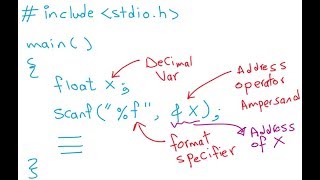 # include <stdio.h>
main()
{
float x;
Decimal Var
scanf("%f", &x);
Address operator
Ampersand
format specifier
Address of X
}